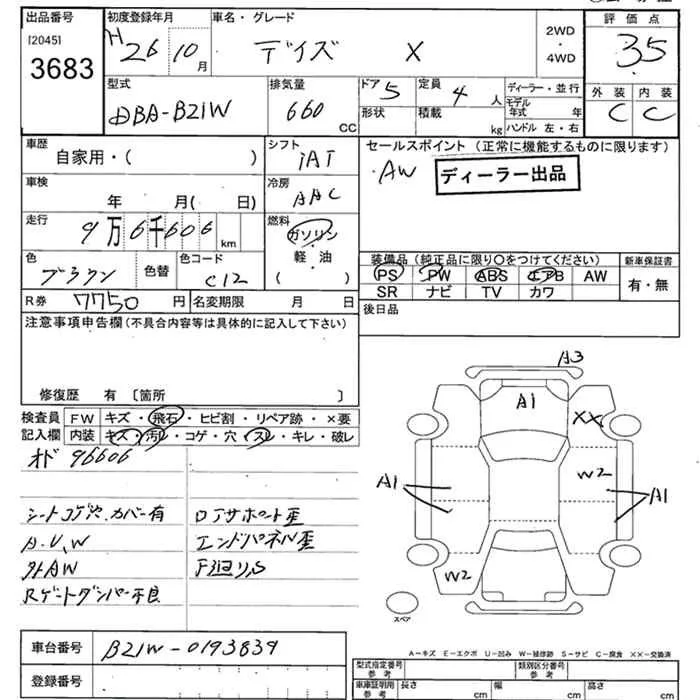 出品番号 初度登録年月 車名・グレード 2WD・4WD 評価点
[2045] H26 10月 デイズ X 35
3683
型式 排気量 ドア 5 定員 4人 ディーラー・並行 外装 内装
DBA-B21W 660 CC 形状 積載 kg モデル年式 年 C C
ハンドル 左・右
車歴 シフト セールスポイント (正常に機能するものに限ります)
自家用・( ) IAT AW ディーラー出品
車検 冷房
年 月( 日) AAC
走行 燃料
9万6千606 km ガソリン
軽・油
( )
色 色替 色コード 装備品(純正品に限り○をつけてください) 新車保証書
ブラウン C12 PS PW ABS エアB AW 有・無
SR ナビ TV カワ
R券 7750円 名変期限 月 日 後日品
注意事項申告欄(不具合内容等は具体的に記入して下さい)
修復歴 有 〔箇所 〕
検査員 FW キズ・飛石・ヒビ割・リペア跡・×要
記入欄 内装 キズ・汚レ・コゲ・穴・スレ・キレ・破レ
オド 96606
シートコゲ穴、カバー有 ロアサポート歪
A.U,W エンドパネル歪
外AW 下廻りS
Rゲートダンパー不良
A3
A1
XX
W2
A1
A1
W2
スペア
A-キズ E-エクボ U-凹み W-補修跡 S-サビ C-腐食 XX-交換済
車台番号 B21W-0193839
登録番号
型式指定番号 類別区分番号
車庫証明用参考 長さ cm 幅 cm 高さ cm